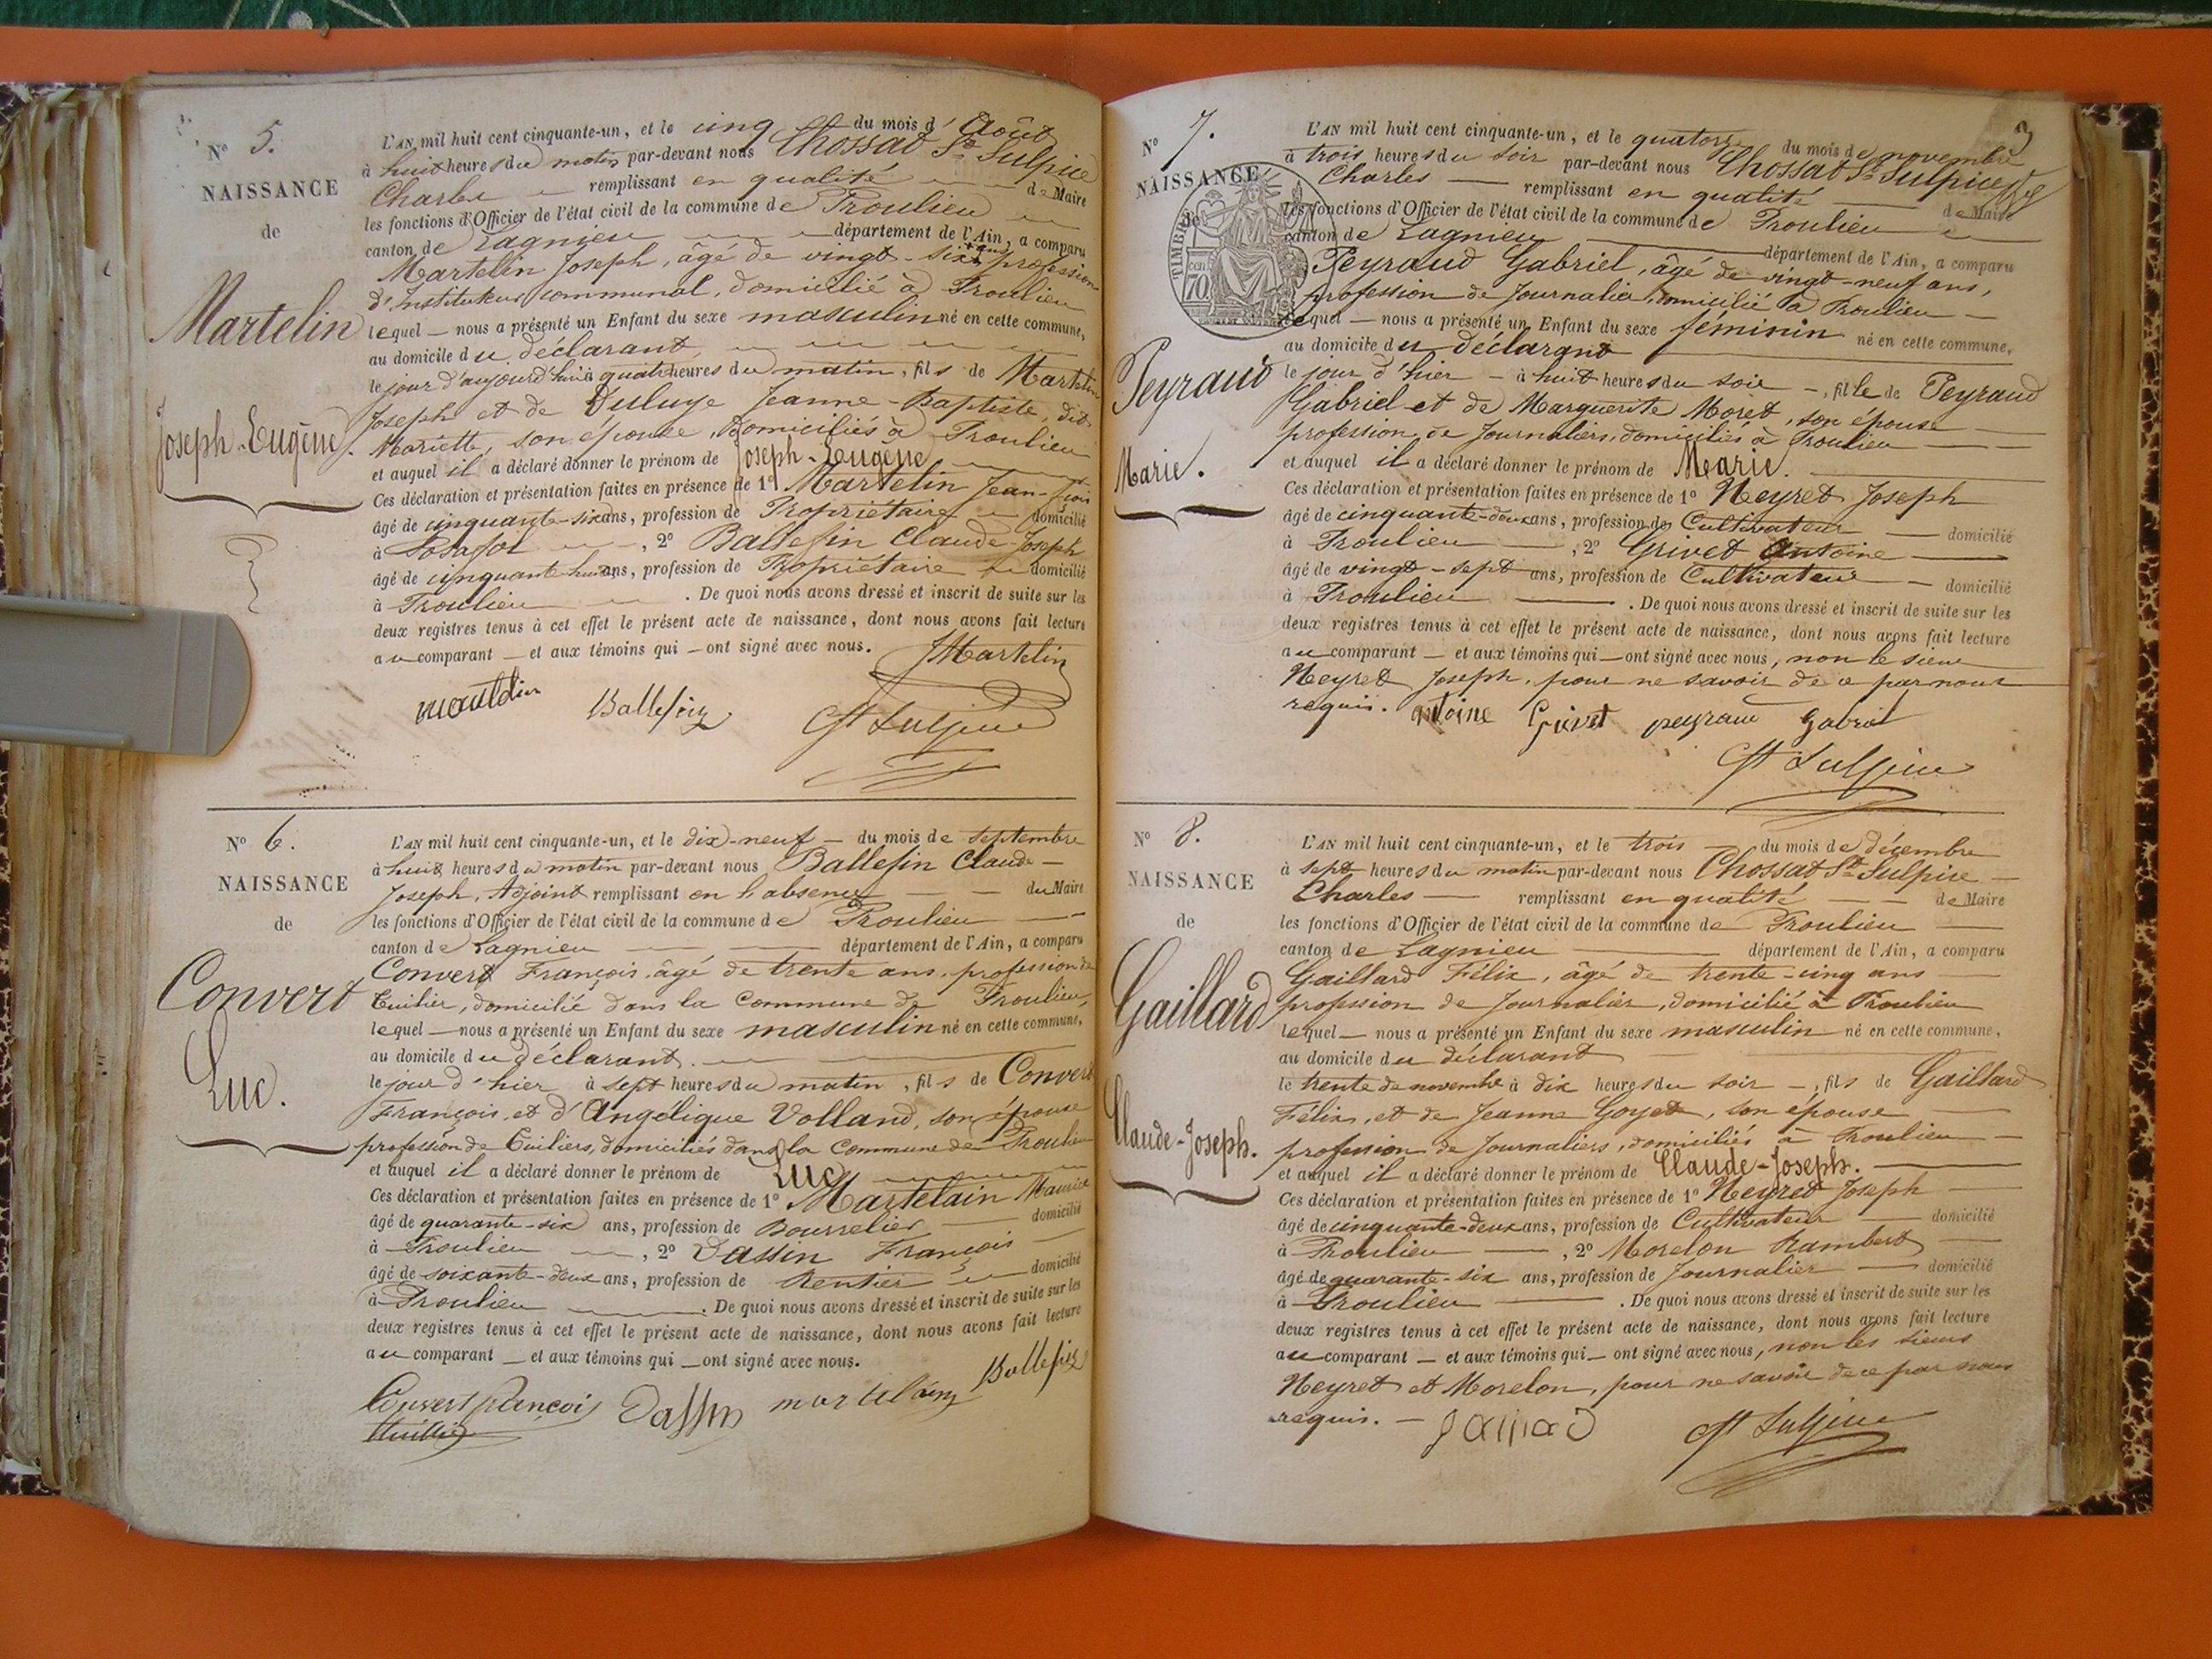 N° 5.
NAISSANCE
de
Martelin
Joseph-Eugène.
L'AN mil huit cent cinquante-un, et le cinq du mois d'Août
à huit heures du matin par-devant nous Chossat St Sulpice
Charles remplissant en qualité de Maire
les fonctions d'Officier de l'état civil de la commune de Proulieu
canton de Lagnieu département de l'Ain, a comparu
Martelin Joseph, âgé de vingt-six ans profession
d'Instituteur communal, domicilié à Proulieu
lequel nous a présenté un Enfant du sexe masculin né en cette commune,
au domicile du déclarant,
le jour d'aujourd'hui à quatre heures du matin, fils de Martelin
Joseph et de Duluye Jeanne-Baptiste, dit
Mariette, son épouse, domiciliés à Proulieu
et auquel il a déclaré donner le prénom de Joseph-Eugène
Ces déclaration et présentation faites en présence de 1° Martelin Jean-
âgé de cinquante-six ans, profession de Propriétaire domicilié
à Posafol, 2° Ballefin Claude-Joseph
âgé de cinquante huit ans, profession de Propriétaire domicilié
à Proulieu. De quoi nous avons dressé et inscrit de suite sur les
deux registres tenus à cet effet le présent acte de naissance, dont nous avons fait lecture
au comparant et aux témoins qui ont signé avec nous.
JMartelin
Ballefin
St Sulpice
N° 6.
NAISSANCE
de
Convert
Luc.
L'AN mil huit cent cinquante-un, et le dix-neuf du mois de septembre
à huit heures du matin par-devant nous Ballefin Claude
Joseph, Adjoint remplissant en l'absence du Maire
les fonctions d'Officier de l'état civil de la commune de Proulieu
canton de Lagnieu département de l'Ain, a comparu
Convert François, âgé de trente ans, profession de
Tuilier, domicilié dans la Commune de Proulieu,
lequel nous a présenté un Enfant du sexe masculin né en cette commune,
au domicile du déclarant.
le jour d'hier à sept heures du matin, fils de Convert
François, et d'Angélique Volland, son épouse
profession de Tuiliers, domiciliés dans la Commune de Proulieu
et auquel il a déclaré donner le prénom de Luc
Ces déclaration et présentation faites en présence de 1° Martelain Maurice
âgé de quarante-six ans, profession de Bourrelier domicilié
à Proulieu, 2° Dassin François
âgé de soixante-deux ans, profession de Rentier domicilié
à Proulieu. De quoi nous avons dressé et inscrit de suite sur les
deux registres tenus à cet effet le présent acte de naissance, dont nous avons fait lecture
au comparant et aux témoins qui ont signé avec nous.
Ballefin
Convert françois Dassin martelain
thuillier
3
N° 7.
NAISSANCE
de
TIMBRE
70 cen
Peyraud
Marie.
L'AN mil huit cent cinquante-un, et le quatorze du mois de novembre
à trois heures du soir par-devant nous Chossat St Sulpice
Charles remplissant en qualité de Maire
les fonctions d'Officier de l'état civil de la commune de Proulieu
canton de Lagnieu département de l'Ain, a comparu
Peyraud Gabriel, âgé de vingt-neuf ans,
profession de Journalier, domicilié à Proulieu
lequel nous a présenté un Enfant du sexe féminin né en cette commune,
au domicile du déclarant
le jour d'hier à huit heures du soir, fille de Peyraud
Gabriel et de Marguerite Moret, son épouse
profession de Journaliers, domiciliés à Proulieu
et auquel il a déclaré donner le prénom de Marie.
Ces déclaration et présentation faites en présence de 1° Neyret Joseph
âgé de cinquante-deux ans, profession de Cultivateur domicilié
à Proulieu, 2° Grivet Antoine
âgé de vingt-sept ans, profession de Cultivateur domicilié
à Proulieu. De quoi nous avons dressé et inscrit de suite sur les
deux registres tenus à cet effet le présent acte de naissance, dont nous avons fait lecture
au comparant et aux témoins qui ont signé avec nous, non le sieur
Neyret Joseph, pour ne savoir de ce par nous
requis. antoine Grivet peyraud Gabriel
St Sulpice
N° 8.
NAISSANCE
de
Gaillard
Claude-Joseph.
L'AN mil huit cent cinquante-un, et le trois du mois de décembre
à sept heures du matin par-devant nous Chossat St Sulpice
Charles remplissant en qualité de Maire
les fonctions d'Officier de l'état civil de la commune de Proulieu
canton de Lagnieu département de l'Ain, a comparu
Gaillard Félix, âgé de trente-cinq ans
profession de Journalier, domicilié à Proulieu
lequel nous a présenté un Enfant du sexe masculin né en cette commune,
au domicile du déclarant
le trente de novembre à dix heures du soir, fils de Gaillard
Félix, et de Jeanne Goyet, son épouse
profession de Journaliers, domiciliés à Proulieu
et auquel il a déclaré donner le prénom de Claude-Joseph.
Ces déclaration et présentation faites en présence de 1° Neyret Joseph
âgé de cinquante-deux ans, profession de Cultivateur domicilié
à Proulieu, 2° Morelon Rambert
âgé de quarante-six ans, profession de Journalier domicilié
à Proulieu. De quoi nous avons dressé et inscrit de suite sur les
deux registres tenus à cet effet le présent acte de naissance, dont nous avons fait lecture
au comparant et aux témoins qui ont signé avec nous, non les sieurs
Neyret et Morelon, pour ne savoir de ce par nous
requis. St Sulpice